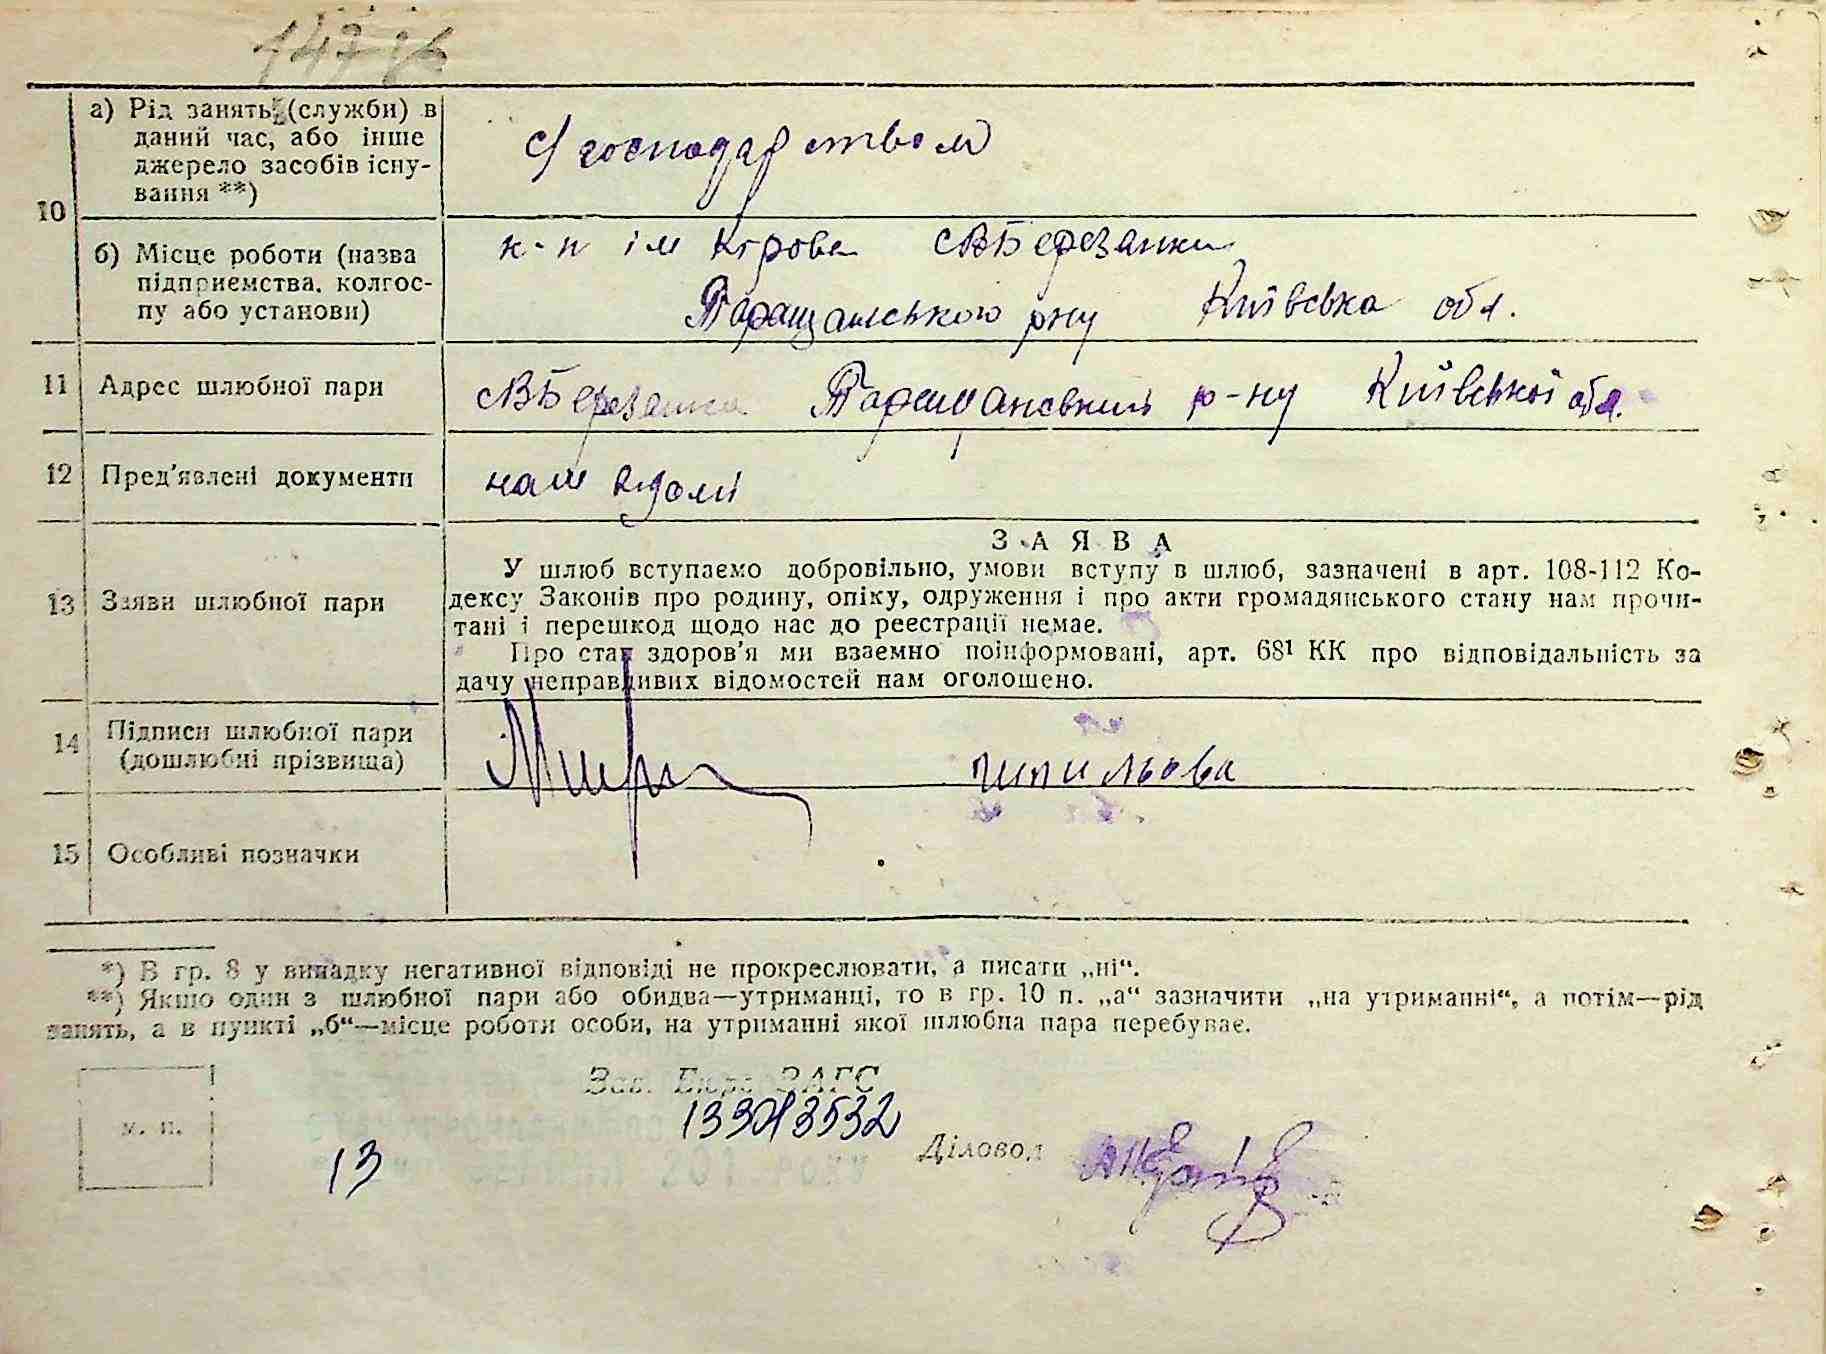 а) Рід занять (служби) в
даний час, або інше
джерело засобів існу-
вання **)
с/господарством
10
б) Місце роботи (назва
підприємства, колгос-
пу або установи)
к-п ім Кірова с ВБерезанки
Таращанського рну Київська обл.
11 Адрес шлюбної пари
с ВБерезанка Таращанський р-ну Київської обл.
12 Пред'явлені документи
13 Заяви шлюбної пари
ЗАЯВА
У шлюб вступаємо добровільно, умови вступу в шлюб, зазначені в арт. 108-112 Ко-
дексу Законів про родину, опіку, одруження і про акти громадянського стану нам прочи-
тані і перешкод щодо нас до реєстрації немає.
Про стан здоров'я ми взаємно поінформовані, арт. 68¹ КК про відповідальність за
дачу неправдивих відомостей нам оголошено.
14 Підписи шлюбної пари
(дошлюбні прізвища)
15 Особливі позначки
*) В гр. 8 у випадку негативної відповіді не прокреслювати, а писати „ні“.
**) Якшо один з шлюбної пари або обидва—утриманці, то в гр. 10 п. „а“ зазначити „на утриманні“, а потім—рід
занять, а в пункті „б“—місце роботи особи, на утриманні якої шлюбна пара перебуває.
Зав. Бюро ЗАГС
м. п.
13
Діловод